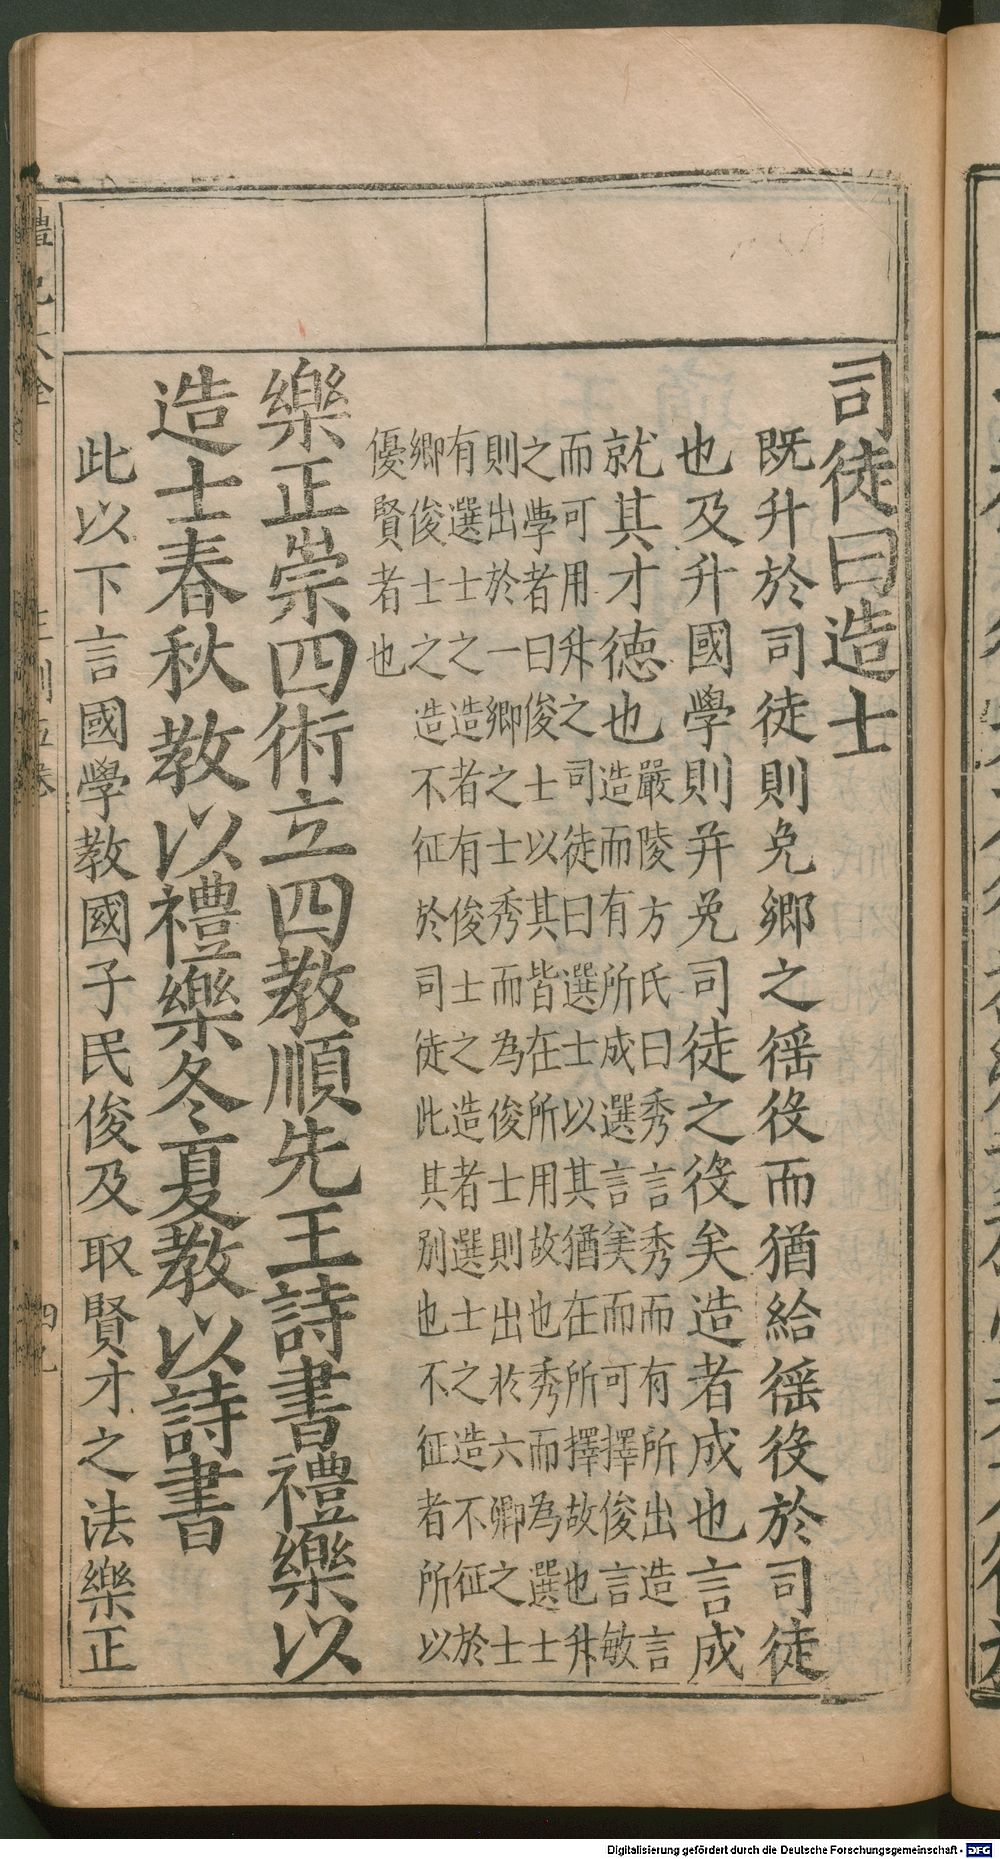 司徒曰造士
既升於司徒則免鄉之徭役而猶給徭役於司徒
也及升國學則并免司徒之役矣造者成也言成
就其才德也
嚴陵方氏曰秀言秀而有所出造言
造而有所成選言美而可擇俊言敏
而可用升之司徒曰選士以其猶在所擇故也升
之學者曰俊士以其皆在所用故也秀而為選士
則出於一鄉之士秀而為俊士則出於六鄉之士
有選士之造者有俊士之造者選士之造不征於
鄉俊士之造不征於司徒此其別也不征者所以
優賢者也
樂正崇四術立四教順先王詩書禮樂以
造士春秋教以禮樂冬夏教以詩書
此以下言國學教國子民俊及取賢才之法樂正
禮記大全
王制五卷
四九
Digitalisierung gefördert durch die Deutsche Forschungsgemeinschaft - DFG